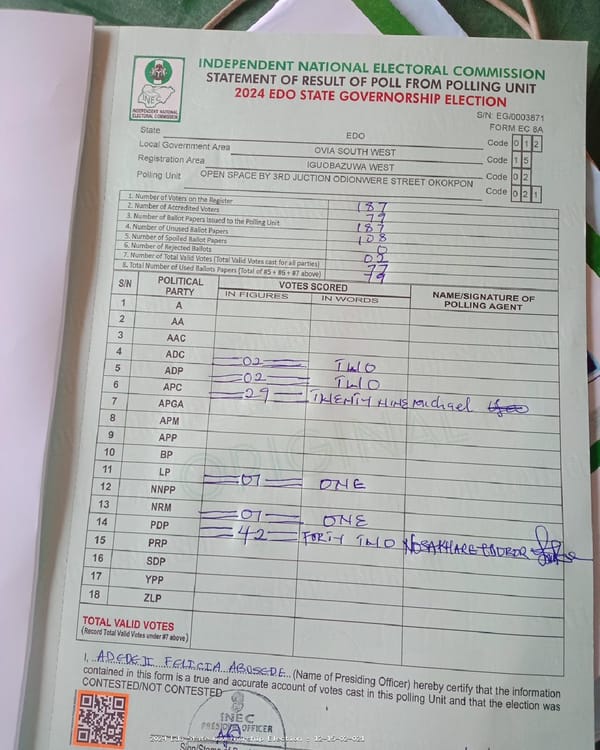 INEC
INDEPENDENT NATIONAL ELECTORAL COMMISSION
INDEPENDENT NATIONAL ELECTORAL COMMISSION
STATEMENT OF RESULT OF POLL FROM POLLING UNIT
2024 EDO STATE GOVERNORSHIP ELECTION
S/N: EG/0003871
FORM EC 8A
State EDO Code 0 1 2
Local Government Area OVIA SOUTH WEST Code 1 5
Registration Area IGUOBAZUWA WEST Code 0 2
Polling Unit OPEN SPACE BY 3RD JUCTION ODIONWERE STREET OKOKPON Code 0 2 1
1. Number of Voters on the Register 187
2. Number of Accredited Voters 79
3. Number of Ballot Papers Issued to the Polling Unit 187
4. Number of Unused Ballot Papers 108
5. Number of Spoiled Ballot Papers 0
6. Number of Rejected Ballots 02
7. Number of Total Valid Votes (Total Valid Votes cast for all parties) 77
8. Total Number of Used Ballots Papers (Total of #5 + #6 + #7 above) 79
S/N POLITICAL PARTY VOTES SCORED NAME/SIGNATURE OF POLLING AGENT
IN FIGURES IN WORDS
1 A
2 AA
3 AAC
4 ADC 02 TWO
5 ADP 02 TWO
6 APC 29 TWENTY NINE Michael
7 APGA
8 APM
9 APP
10 BP
11 LP 01 ONE
12 NNPP
13 NRM 01 ONE
14 PDP 42 FORTY TWO
15 PRP
16 SDP
17 YPP
18 ZLP
ORIGINAL
TOTAL VALID VOTES
(Record Total Valid Votes under #7 above)
I, ADEDEJI FELICIA ABOSEDE (Name of Presiding Officer) hereby certify that the information
contained in this form is a true and accurate account of votes cast in this polling Unit and that the election was
CONTESTED/NOT CONTESTED
INEC
PRESIDING OFFICER